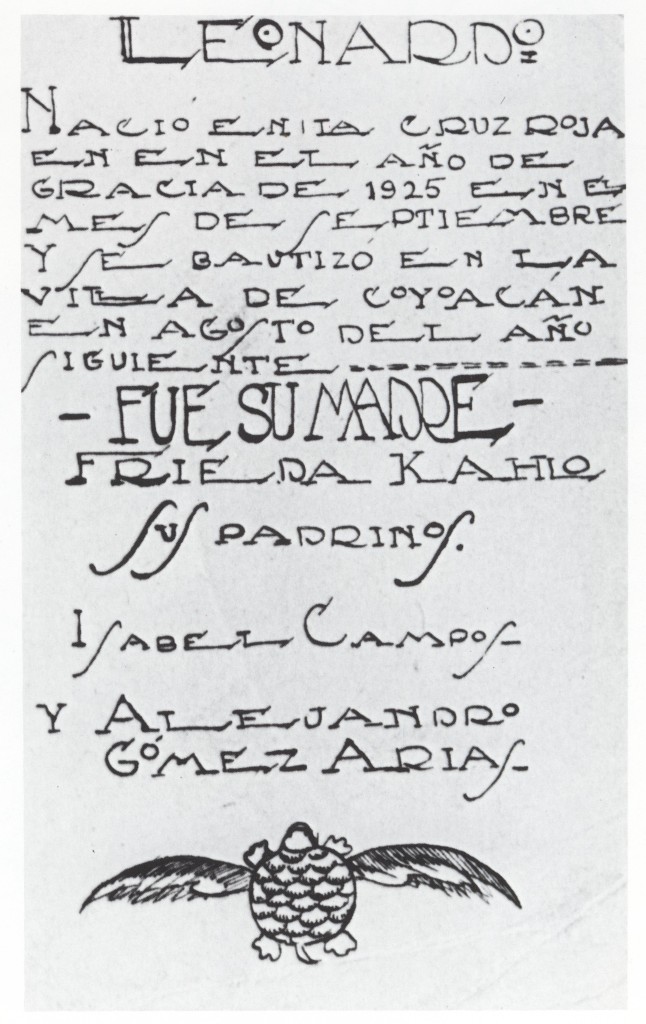 LEONARDO
NACIÓ EN LA CRUZ ROJA
EN EN EL AÑO DE
GRACIA DE 1925 EN E
MES DE SEPTIEMBRE
Y SE BAUTIZÓ EN LA
VILLA DE COYOACÁN
EN AGOSTO DEL AÑO
SIGUIENTE ----------
- FUE SU MADRE -
FRIEDA KAHLO
SUS PADRINOS.
ISABEL CAMPOS-
Y ALEJANDRO
GÓMEZ ARIAS-